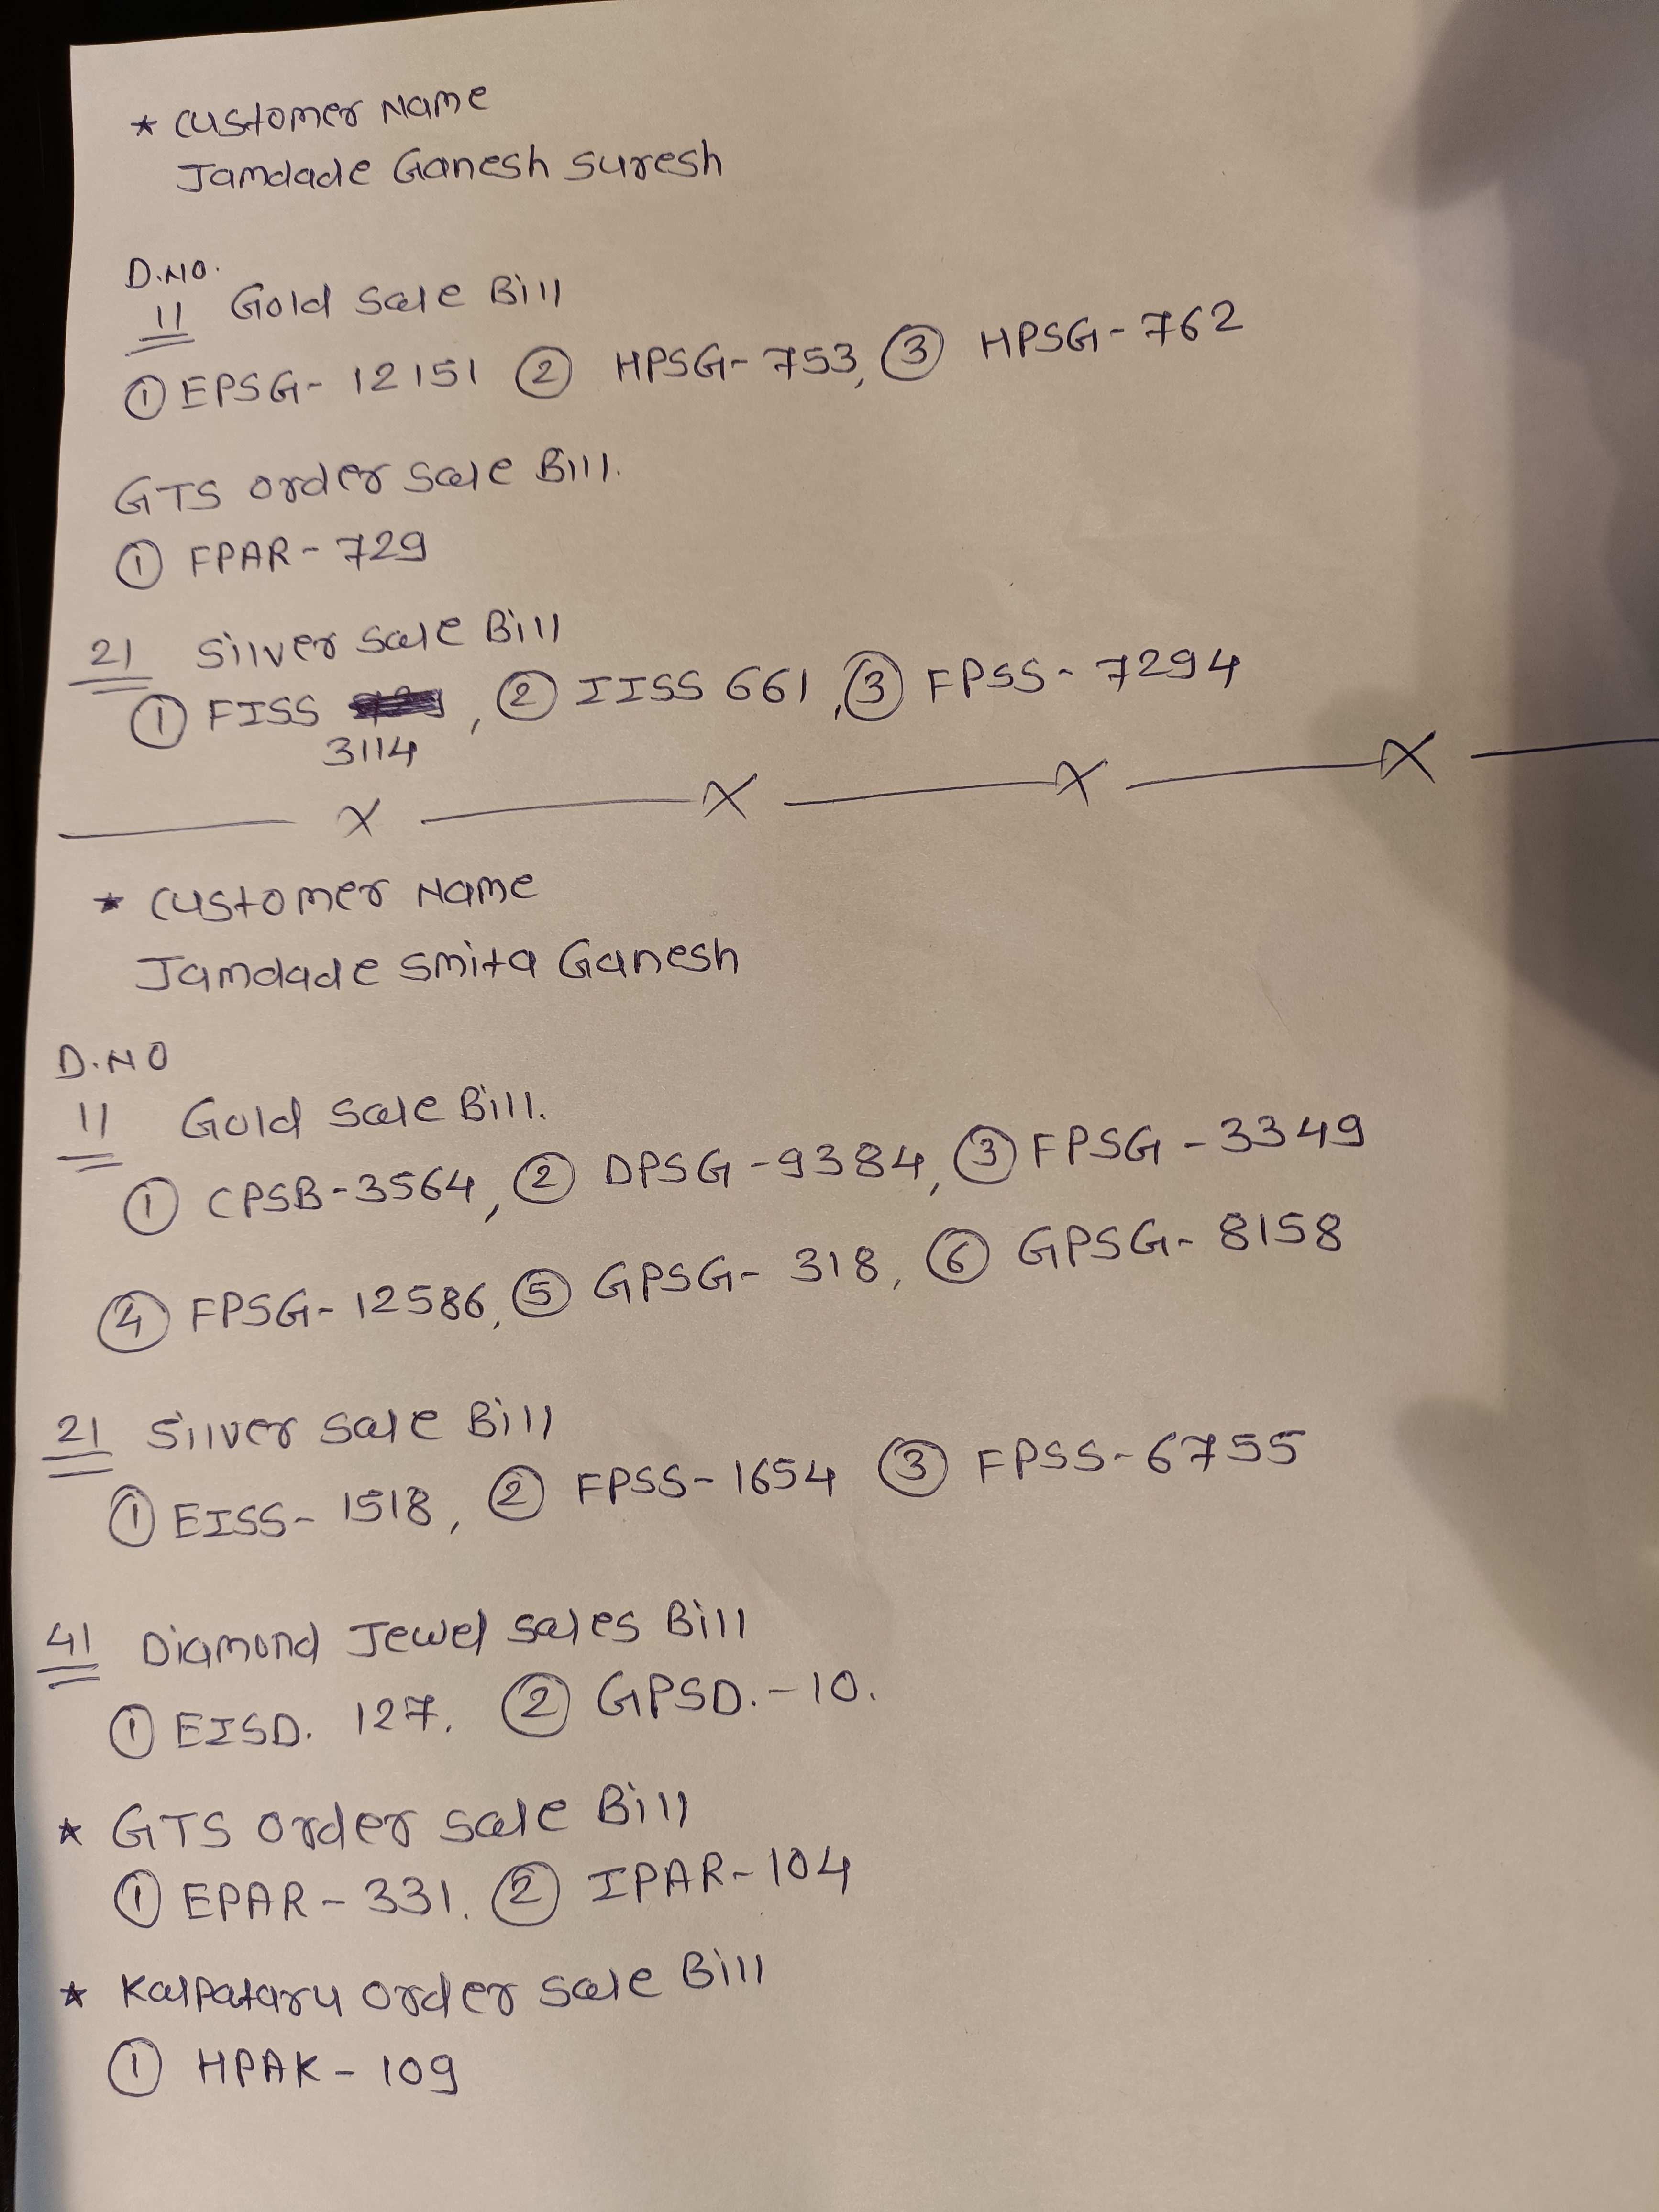 * Customer Name
Jamdade Ganesh Suresh
D.NO.
11 Gold Sale Bill
① EPSG- 12151 ② HPSG- 753, ③ HPSG- 762
GTS order Sale Bill.
① FPAR - 729
21 Silver Sale Bill
① FISS , ② IISS 661, ③ FPSS- 7294
3114
X X X X
* Customer Name
Jamdade Smita Ganesh
D.NO
11 Gold Sale Bill.
① CPSB-3564, ② DPSG-9384, ③ FPSG-3349
④ FPSG- 12586, ⑤ GPSG- 318, ⑥ GPSG- 8158
21 Silver Sale Bill
① EISS- 1518, ② FPSS- 1654 ③ FPSS- 6755
41 Diamond Jewel Sales Bill
① EISD. 127. ② GPSD.-10.
* GTS Order Sale Bill
① EPAR - 331. ② IPAR- 104
* Kalpataru Order Sale Bill
① HPAK - 109